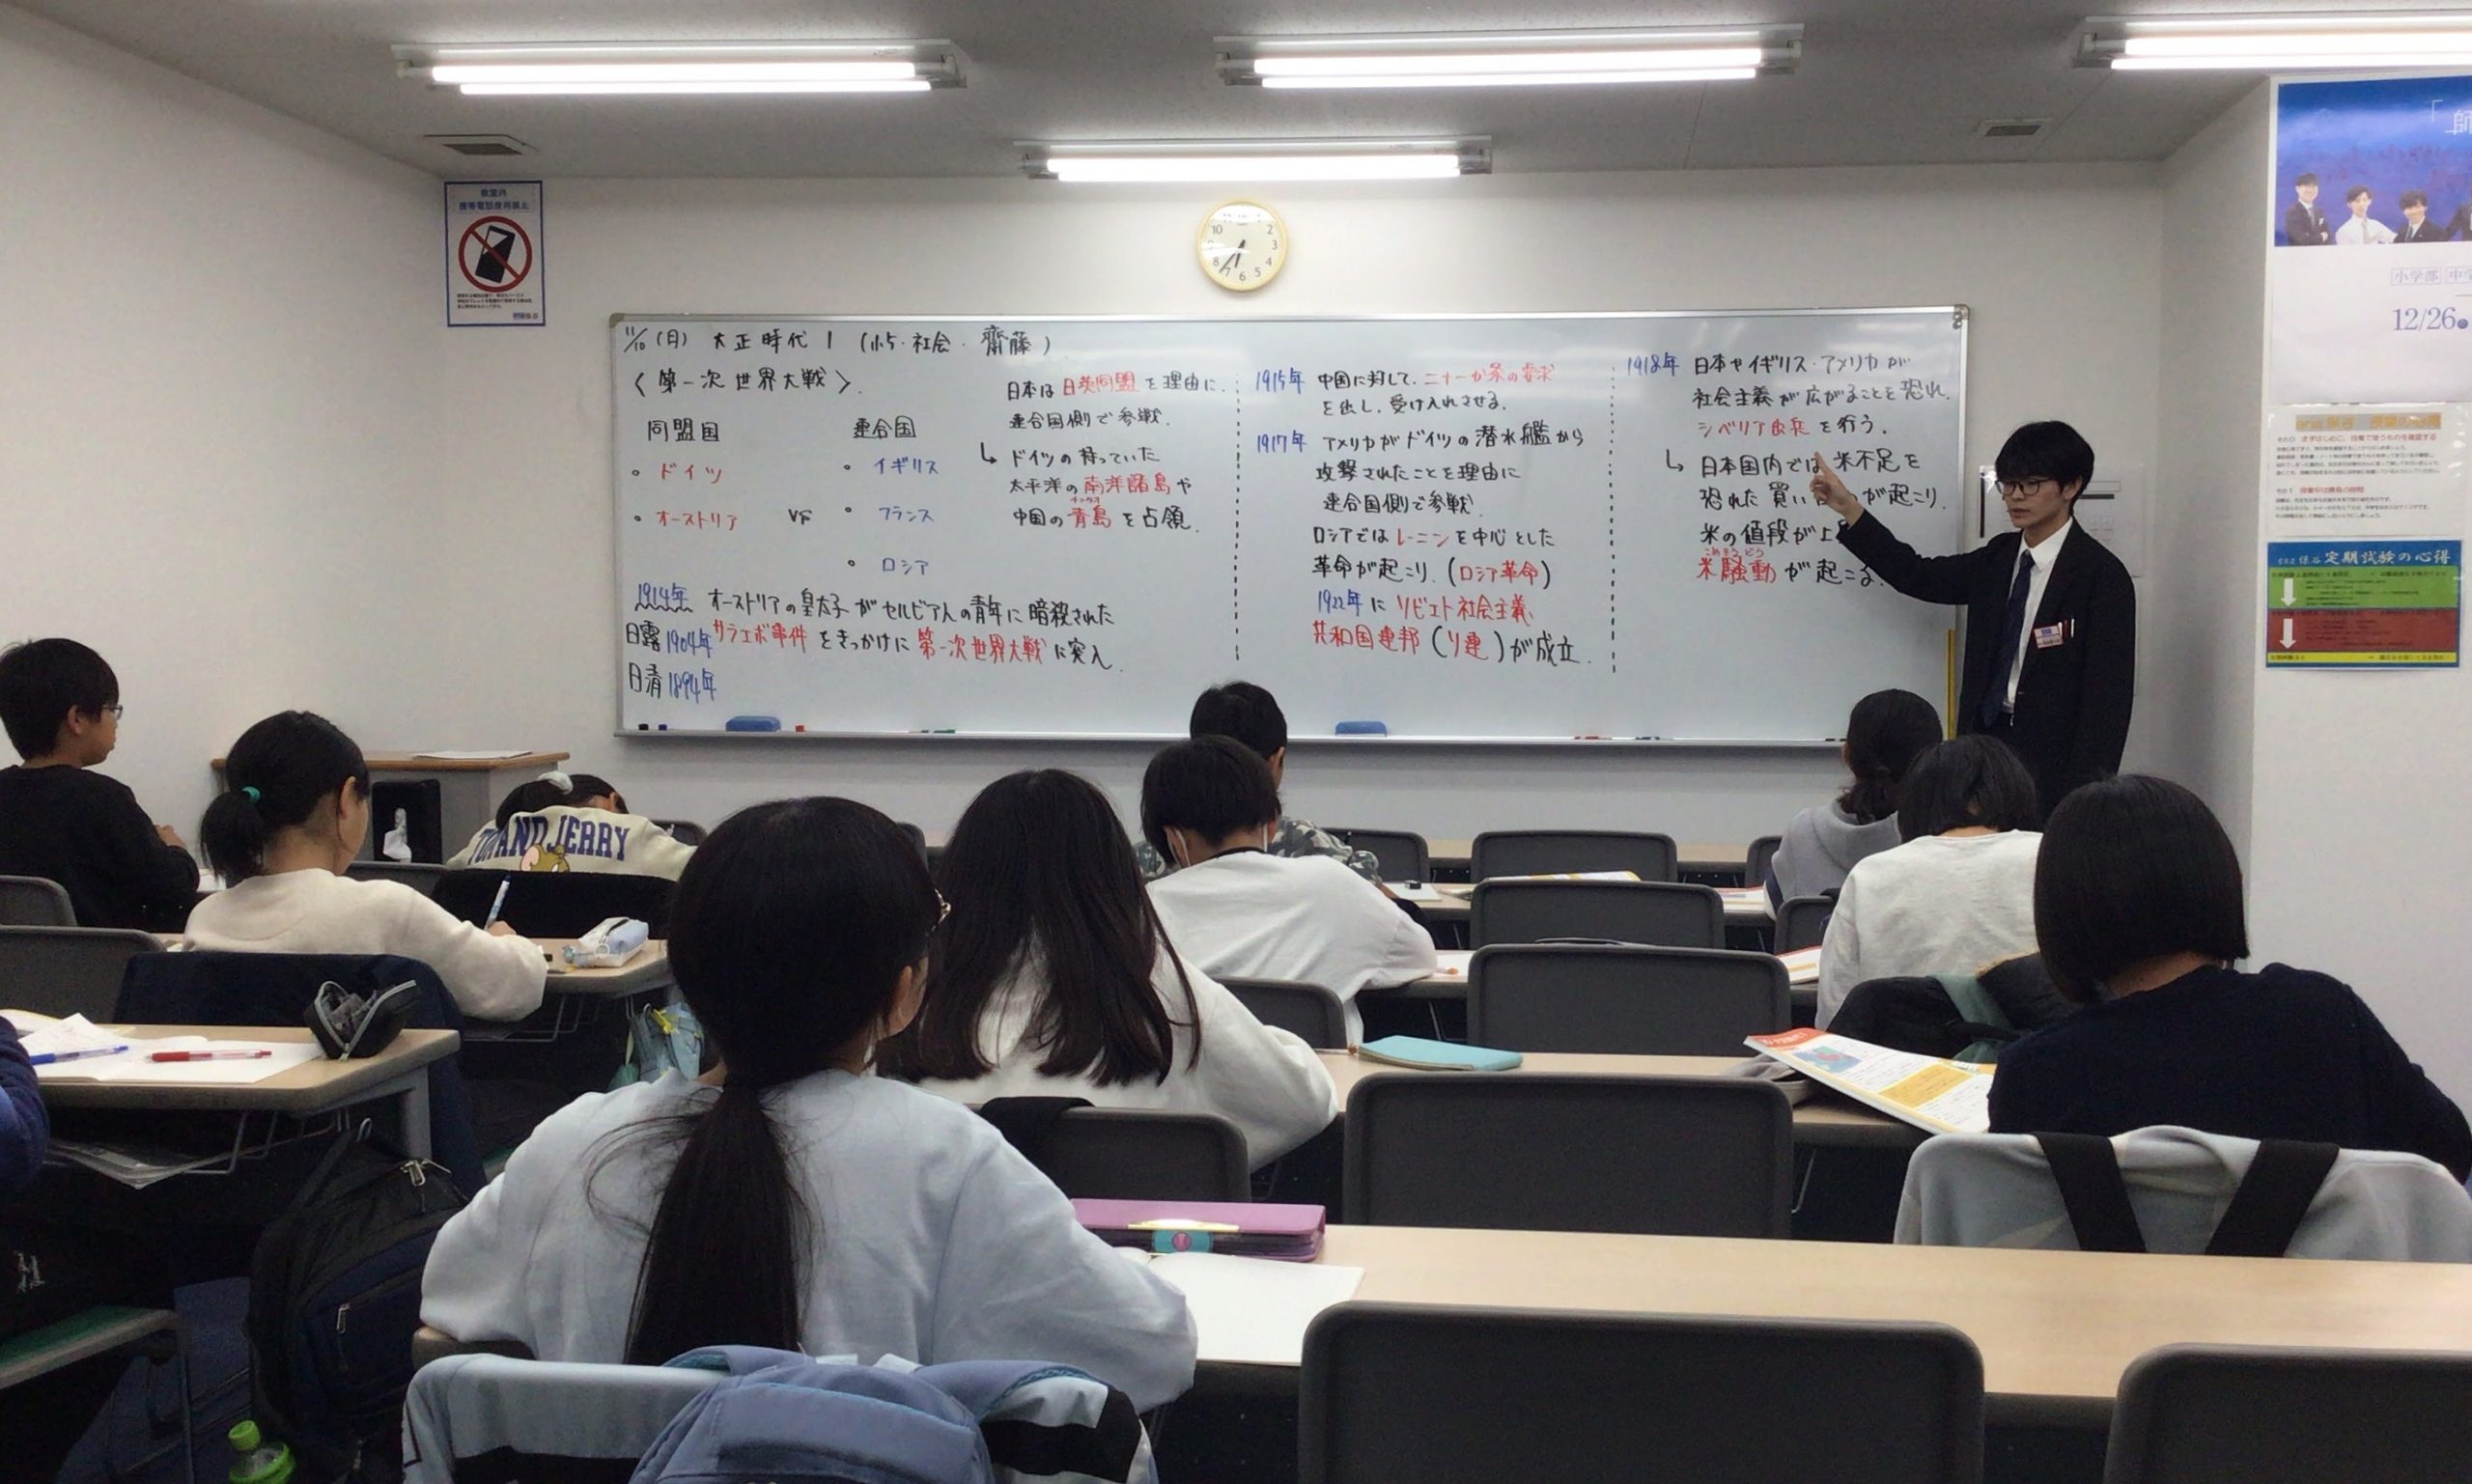 教室内
携帯電話使用禁止
10
2
3
4
5
6
7
8
11/10(日) 大正時代1 (小5・社会・齋藤)
〈第一次世界大戦〉
同盟国
・ドイツ
・オーストリア
VS
連合国
・イギリス
・フランス
・ロシア
1914年 オーストリアの皇太子がセルビア人の青年に暗殺された
日露1904年 サラエボ事件をきっかけに第一次世界大戦に突入.
日清1894年
日本は日英同盟を理由に.
連合国側で参戦.
↳ ドイツの持っていた
太平洋の南洋諸島や
チンタオ
中国の青島を占領.
1915年 中国に対して、二十一か条の要求
を出し、受け入れさせる.
1917年 アメリカがドイツの潜水艦から
攻撃されたことを理由に
連合国側で参戦.
ロシアではレーニンを中心とした
革命が起こり.(ロシア革命)
1922年にソビエト社会主義
共和国連邦(ソ連)が成立.
1918年 日本やイギリス・アメリカが
社会主義が広がることを恐れ.
シベリア出兵を行う.
↳ 日本国内では米不足を
恐れた買い が起こり.
米の値段が上
こめそうどう
米騒動が起こる.
TOM AND JERRY
「師
小学部 中学
12/26
定期試験の心得